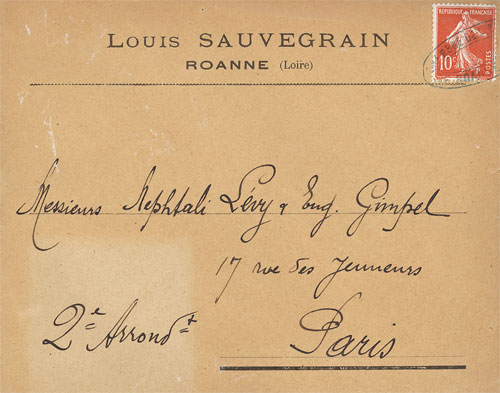 Louis SAUVEGRAIN
ROANNE (Loire)
REPUBLIQUE FRANÇAISE
10c
POSTES
Messieurs Nephtali Lévy & Eug. Gimpel
17 rue des Jeuneurs
2e Arrondt
Paris